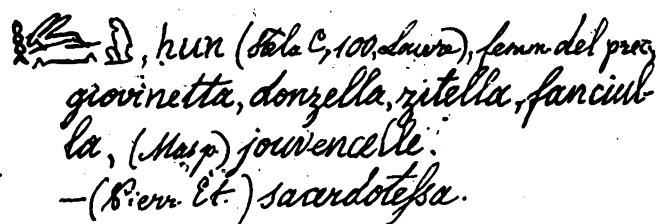 , hun (Stela C, 100, Louvre), femm. del prec.
giovinetta, donzella, zitella, fanciul-
la, (Masp.) jouvencelle.
— (Pierr. Et.) sacerdotessa.